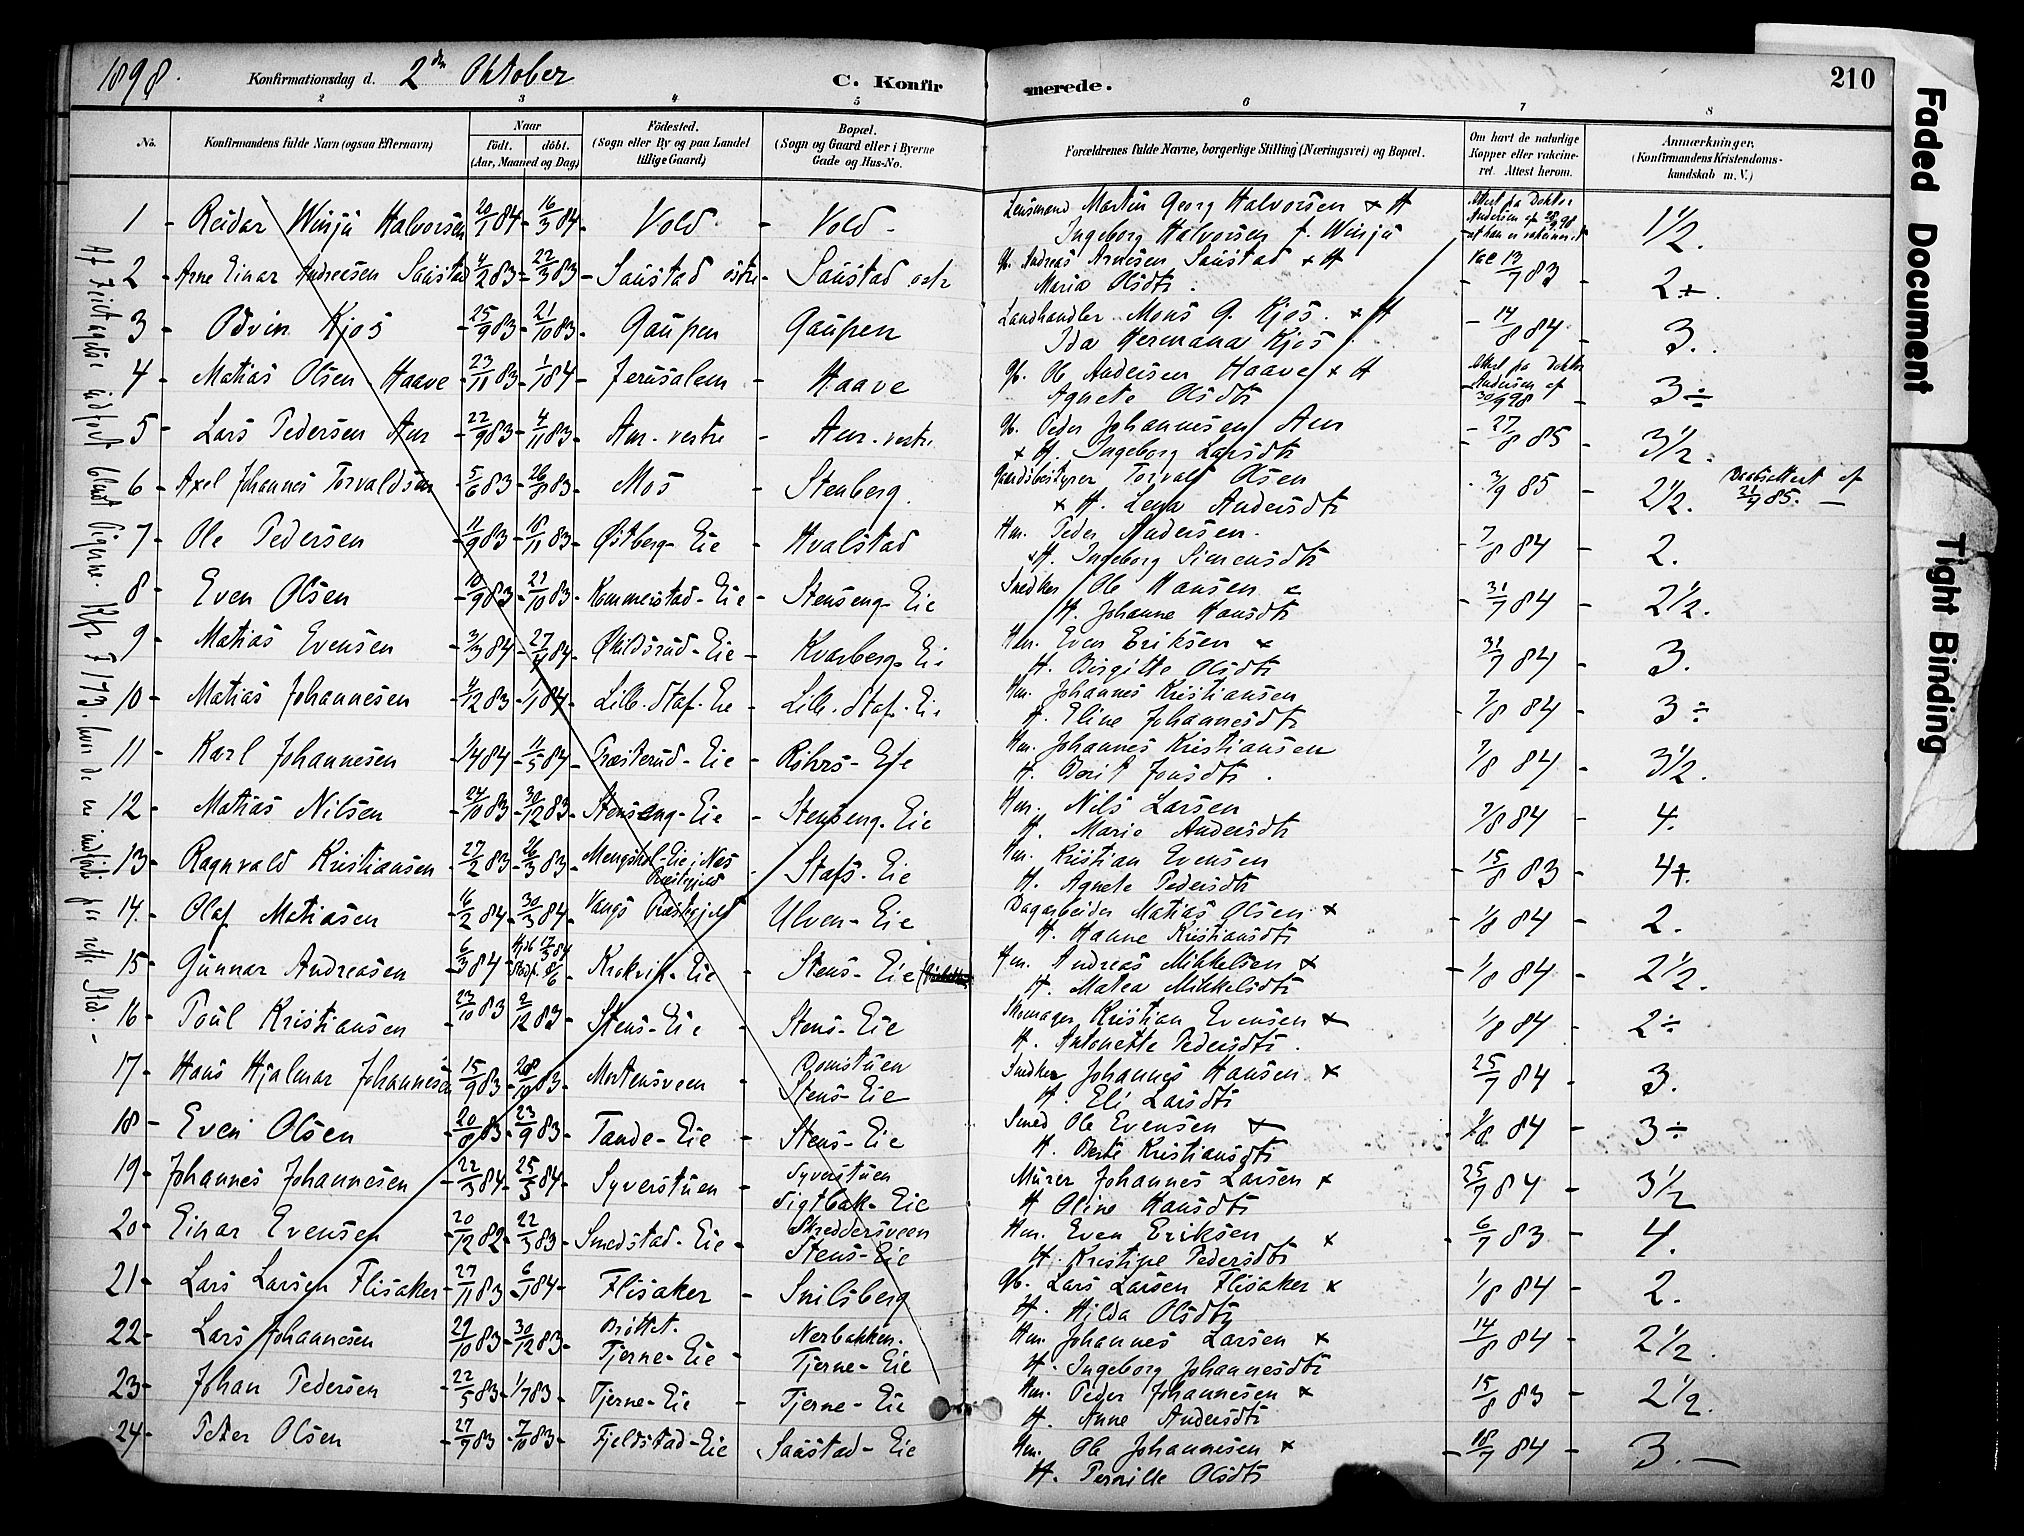 1898. Konfirmationsdag d. 2den Oktober C. Konfirmerede. 210
2 3 4 5 6 7 8
No. Konfirmandens fulde Navn (ogsaa Efternavn) Naar födt. döbt. (Aar, Maaned og Dag) Födested. (Sogn eller By og paa Landet tillige Gaard) Bopæl. (Sogn og Gaard eller i Byerne Gade og Hus-No. Forældrenes fulde Navne, borgerlige Stilling (Næringsvei) og Bopæl. Om havt de naturlige Kopper eller vakcineret. Attest herom. Anmærkninger. (Konfirmandens Kristendomskundskab m. V.)
1 - Reidar Winju Halvorsen 20/1 84 - 16/3 84 - Vold - Vold - Lensmand Martin Georg Halvorsen x H Attest fra Doktor 1½.
Ingeborg Halvorsen f. Winju Andersen
2 - Arne Einar Andreesen Saustad 4/2 83 - 22/3 83 - Saustad östre - Saustad östr Gb. Andreas Arnesen Saustad x H Vac 13/7 83 - 2+.
Maria Olsdtr.
3 - Odvin Kjos - 25/9 83 - 21/10 83 - Gaupen - Gaupen Landhandler Mons G. Kjos x H - 14/8 84 - 3.
Ida Hermana Kjos
4 - Matias Olsen Haave - 23/11 83 - 1/1 84 - Jerusalem - Haave Gb. Ole Andersen Haave x H Attest fra Doktor Andersen af 30/9 98 - 3÷
Agnete Olsdtr
5 - Lars Pedersen Aur - 22/9 83 - 4/11 83 - Aur. vestre - Aur. vestr. Gb. Peder Johannesen Aur - 27/8 85 - 3½.
x H. Ingeborg Larsdtr
6 - Axel Johannes Torvaldsen 5/6 83 - 26/8 83 - Mos - Stenberg. Gaardsbestyrer Torvald Olsen 3/9 85 - 2½. Daabsattest af
x H. Lena Andersdtr
7 - Ole Pedersen - 11/9 83 - 18/11 83 - Østberg - Eie - Hvalstad Hm. Peder Andersen. - 7/8 84 - 2.
x H. Ingeborg Simensdtr
8 - Even Olsen - 10/9 83 - 21/10 83 - Kommerstad - Eie - Stenseng - Eie Snedker Ole Hansen x - 31/7 84 - 2½.
H. Johanne Hansdtr
9 - Matias Evensen - 3/3 84 - 27/4 84 - Økildsrud - Eie - Kvarberg - Ei Hm. Even Eriksen x 31/7 84 - 3.
H. Birgitte Olsdtr
10 - Matias Johannesen - 4/12 83 - 1/1 84 - Lille. Staf. Eie - Lille. Staf. Ei. Hm. Johannes Kristiansen - 7/8 84 - 3÷
H. Eline Johannesdtr
11 - Karl Johannesen - 14/4 84 - 11/5 84 - Præsterud - Eie - Röhrs - Eie Hm. Johannes Kristiansen 7/8 84 - 3½.
H. Berit Jonsdtr.
12 - Matias Nilsen - 24/10 83 - 30/12 83 - Stenseng - Eie - Stenseng - Eie Hm. Nils Larsen 7/8 84 - 4.
H. Marie Andersdtr
13 - Ragnvald Kristiansen - 27/2 83 - 26/3 83 - Mengshol - Eie i Nes Præstegjeld Stafs - Eie Hm. Kristian Evensen - 15/8 83 - 4+.
H. Agnete Pedersdtr
14. - Olaf Matiasen - 16/2 84 - 30/3 84 - Vangs Præstegjeld Ulven - Eie Dagarbeider Matias Olsen x - 1/8 84 - 2.
H. Hanne Kristiansdtr
15 - Gunnar Andreasen 6/3 84 - Hjd. 17/3 84 Stadf. 8/6 - Krakvik - Eie - Stens - Eie Hm. Andreas Mikkelsen x - 1/8 84 - 2½.
H. Matea Mikkelsdtr
16 - Poul Kristiansen - 23/10 83 - 2/12 83 - Stens - Eie - Stens - Eie Skomager Kristian Evensen x 1/8 84 - 2÷
H. Antonette Pedersdtr.
17 - Hans Hjalmar Johannesen 15/9 83 - 28/10 83 - Mortensveen - Domstuen Stens - Eie Snedker Johannes Hansen x 25/7 84 - 3.
H. Eli Larsdtr
18 - Even Olsen - 20/8 83 - 23/9 83 - Tande - Eie - Stens - Eie Smed Ole Evensen x 1/8 84 - 3÷
H. Berte Kristiansdtr
19 - Johannes Johannesen - 22/3 84 - 25/5 84 - Syverstuen - Syverstuen Sigtbak - Eie Murer Johannes Larsen x 25/7 84 - 3½
H Oline Hansdtr
20 - Einar Evensen - 20/12 82 - 22/3 83 - Smedstad - Eie - Skreddersveen Stens - Eie Hm. Even Eriksen x - 6/7 83 - 4.
H. Kristine Pedersdtr
21 - Lars Larsen Flisaker - 27/11 83 - 6/1 84 - Flisaker - Snilsberg Gb. Lars Larsen Flisaker x 1/8 84 - 2.
H. Hilda Olsdtr
22 - Lars Johannesen - 29/10 83 - 30/12 83 - Bröttet. Tjerne - Eie - Nerbakken. Tjerne - Eie Hm. Johannes Larsen x 14/8 84 - 2½.
H. Ingeborg Johannesdtr
23 - Johan Pedersen - 22/5 83 - 1/7 83 - Tjerne - Eie - Tjerne - Eie Hm. Peder Johannesen x 15/8 83 - 2½.
H. Anne Andersdtr
24 - Peter Olsen - 27/9 83 - 7/10 83 - Fjeldstad - Eie Saustad - Eie Hm. Ole Johannesen x - 18/7 84 - 3. -
H. Pernille Olsdtr
Faded Document
Tight Binding